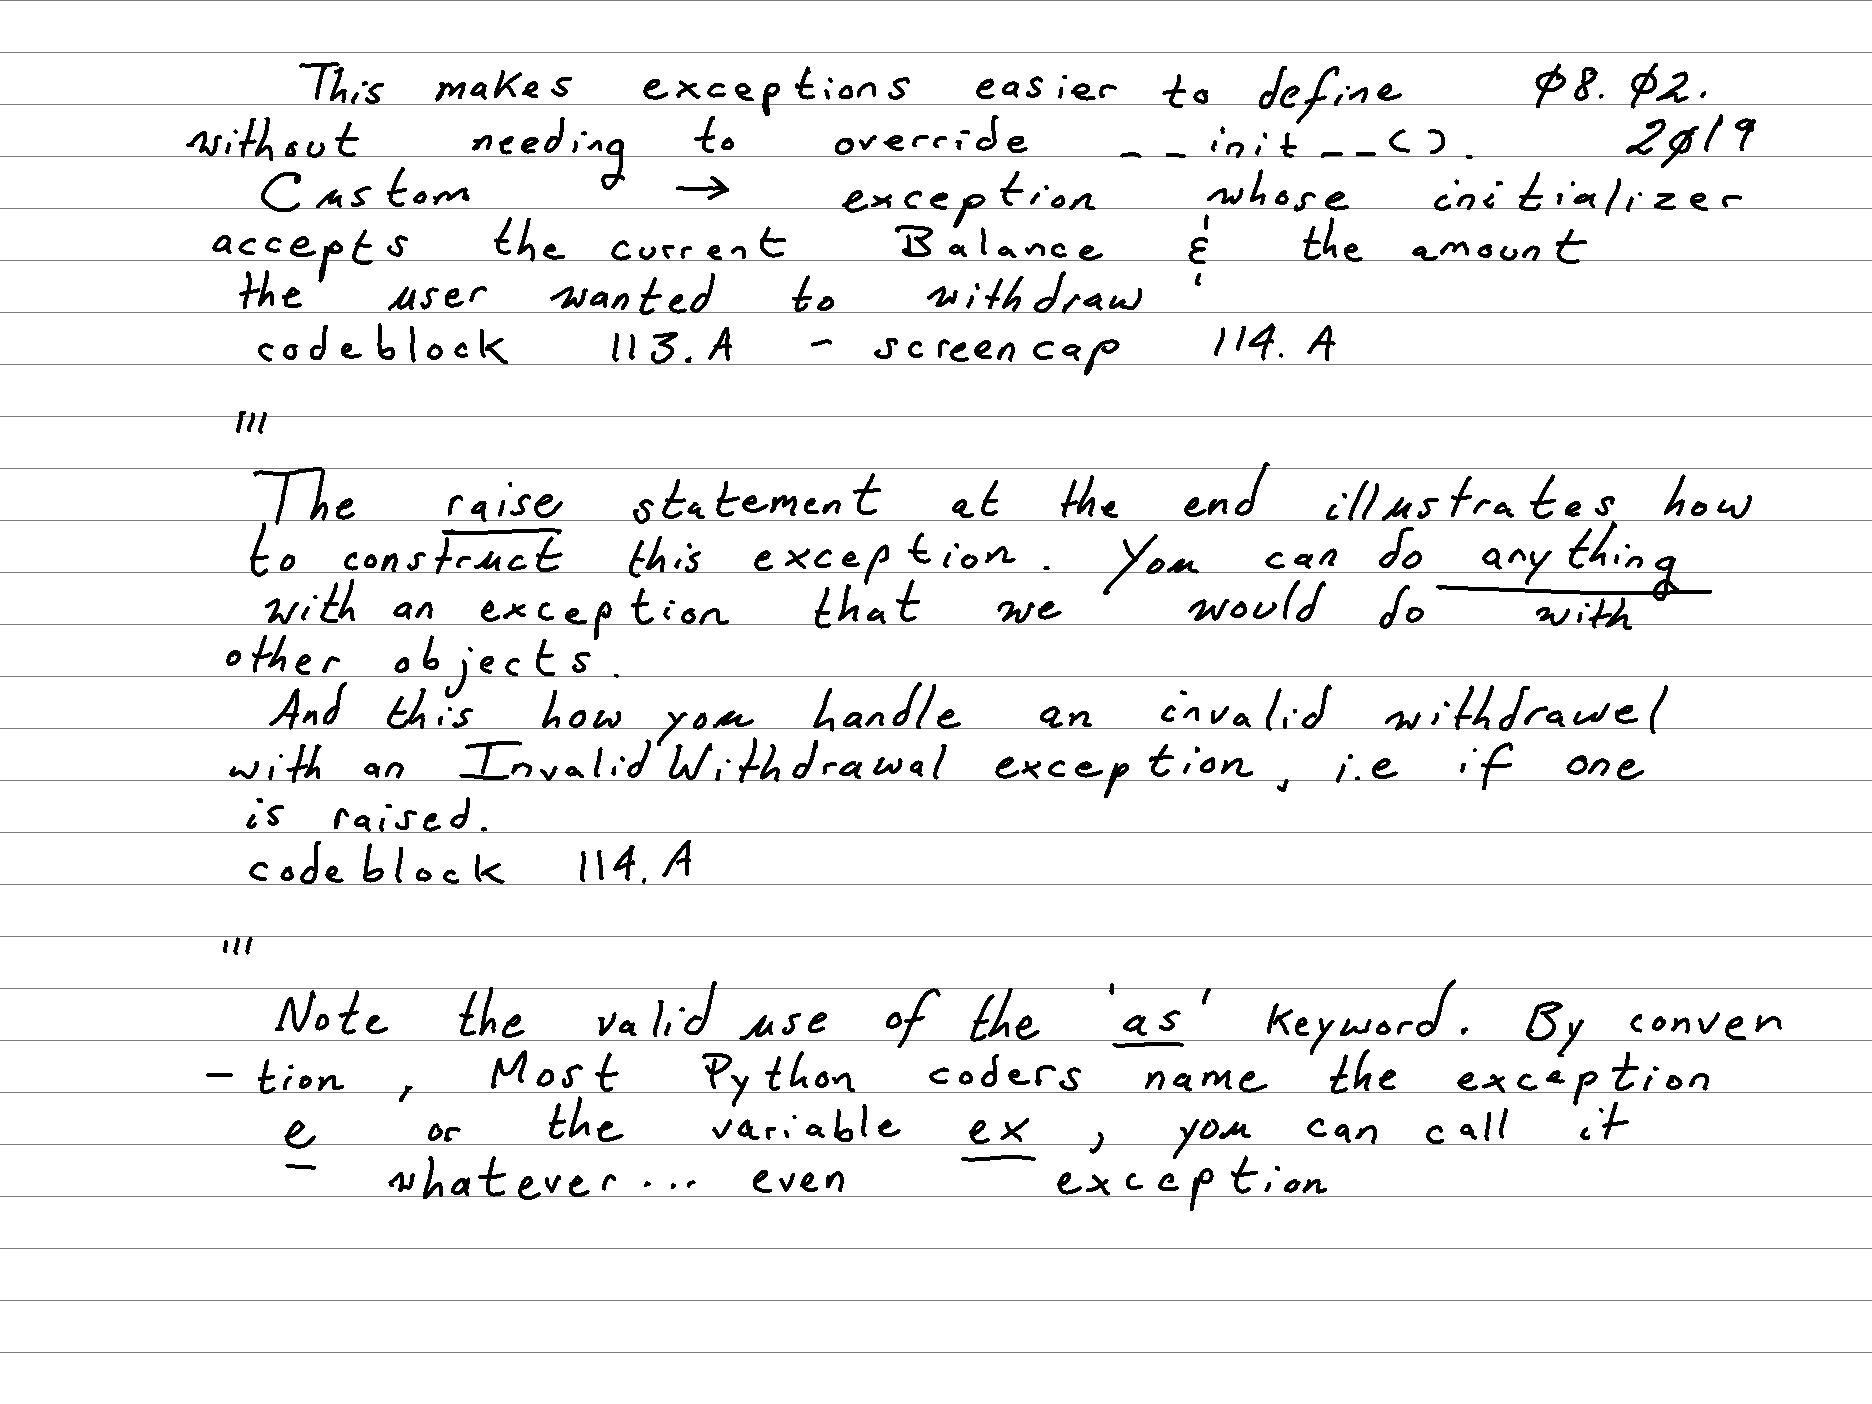 This makes exceptions easier to define Ø8. Ø2.
without needing to override __init__(). 2Ø19
Custom → exception whose initializer
accepts the current Balance & the amount
the user wanted to withdraw
codeblock 113.A - screencap 114. A
'''
The raise statement at the end illustrates how
to construct this exception. You can do anything
with an exception that we would do with
other objects.
And this how you handle an invalid withdrawel
with an InvalidWithdrawal exception, i.e if one
is raised.
codeblock 114. A
'''
Note the valid use of the 'as' keyword. By conven
- tion, Most Python coders name the exception
e or the variable ex, you can call it
whatever... even exception